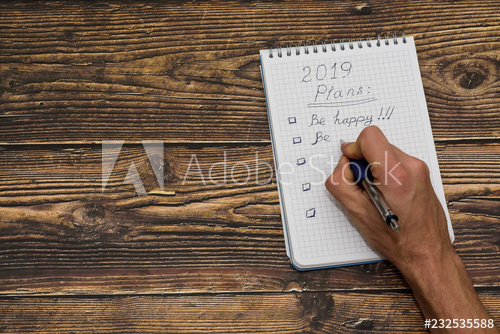 2019
Plans:
Be happy!!!
Be
Adobe Stock
© 232535588